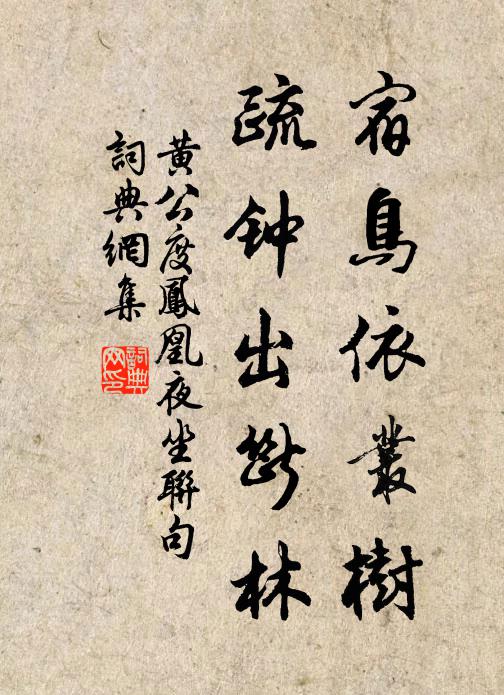 宿鳥依叢樹
疏钟出断林
黄公度鳳凰夜坐聯句
詞典網集
詞典网印